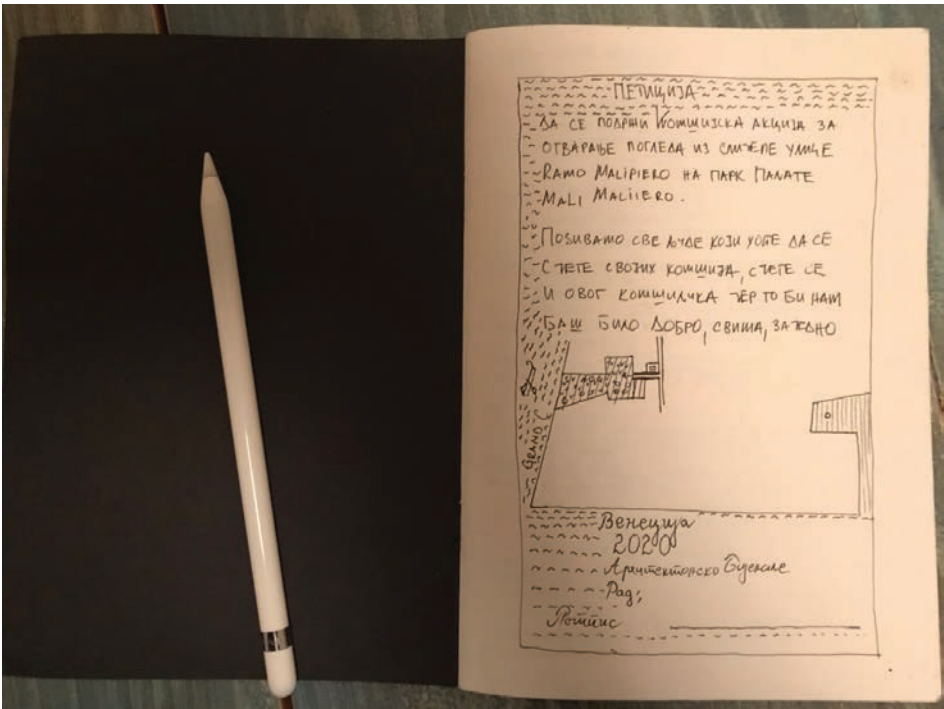 ПЕТИЦИЈА
ДА СЕ ПОДРЖИ КОМШИЈСКА АКЦИЈА ЗА
ОТВАРАЊЕ ПОГЛЕДА ИЗ СЛИЈЕПЕ УЛИЦЕ
RAMO MALIPIERO НА ПАРК ПАЛАТЕ
MALI
ПОЗИВАМО СВЕ ЉУДЕ КОЈИ ХОЋЕ ДА СЕ
СЈЕТЕ СВОЈИХ КОМШИЈА, СЈЕТЕ СЕ
И ОВОГ КОМШИЛУКА ЈЕР ТО БИ НАМ
БАШ БИЛО ДОБРО, СВИМА, ЗАЈЕДНО
GRAND C
Венеција
2020
Архитектонско Бијенале
Рад;
Потпис